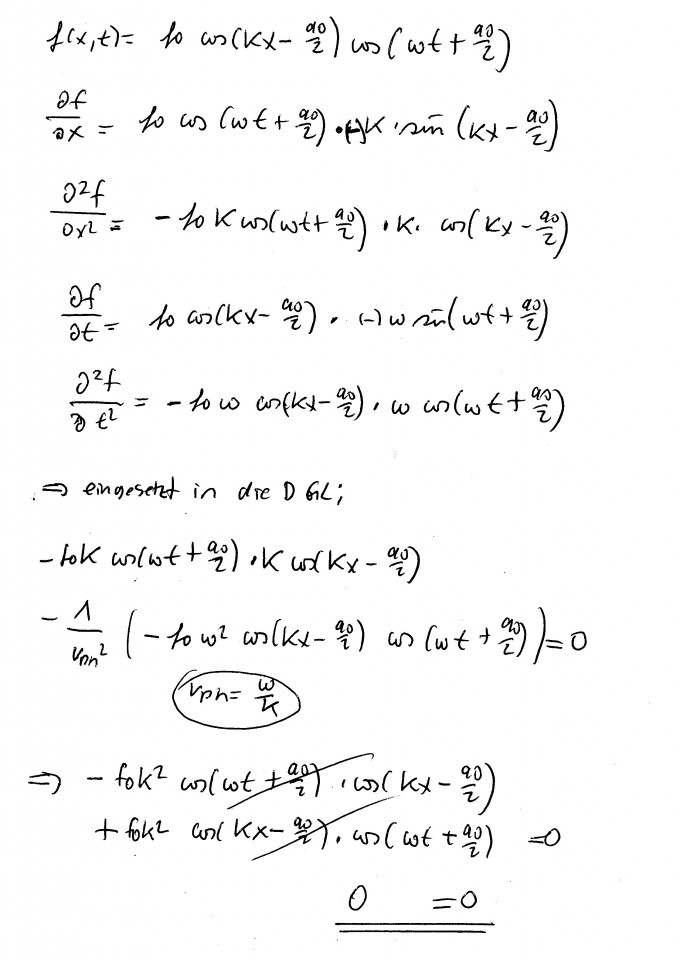 f(x,t) = f0 cos(kx - φ0/2) cos(ωt + φ0/2)
∂f/∂x = f0 cos(ωt + φ0/2) · (-)k · sin(kx - φ0/2)
∂²f/∂x² = - f0 k cos(ωt + φ0/2) · k · cos(kx - φ0/2)
∂f/∂t = f0 cos(kx - φ0/2) · (-)ω sin(ωt + φ0/2)
∂²f/∂t² = - f0 ω cos(kx - φ0/2) · ω cos(ωt + φ0/2)
⇒ eingesetzt in die DGL;
- f0k cos(ωt + φ0/2) · k cos(kx - φ0/2)
- 1/vph² (- f0 ω² cos(kx - φ0/2) cos(ωt + φ0/2)) = 0
vph = ω/k
⇒ - f0k² cos(ωt + φ0/2) · cos(kx - φ0/2)
+ f0k² cos(kx - φ0/2) · cos(ωt + φ0/2) = 0
0 = 0